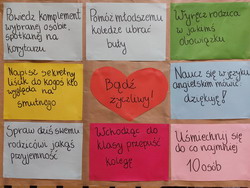 Powiedz komplement
wybranej osobie,
spotkanej na
korytarzu
Pomóż młodszemu
koledze ubrać
buty
Wyręcz rodzica
w jakimś
obowiązku
Napisz sekretny
liścik do kogoś kto
wygląda na
smutnego
Bądź
życzliwy!
Naucz się w języku
angielskim mówić
dziękuję!
Spraw dziś swemu
rodzicowi jakąś
przyjemność
Wchodząc do
klasy przepuść
kolegę
Uśmiechnij się
do co najmniej
10 osób